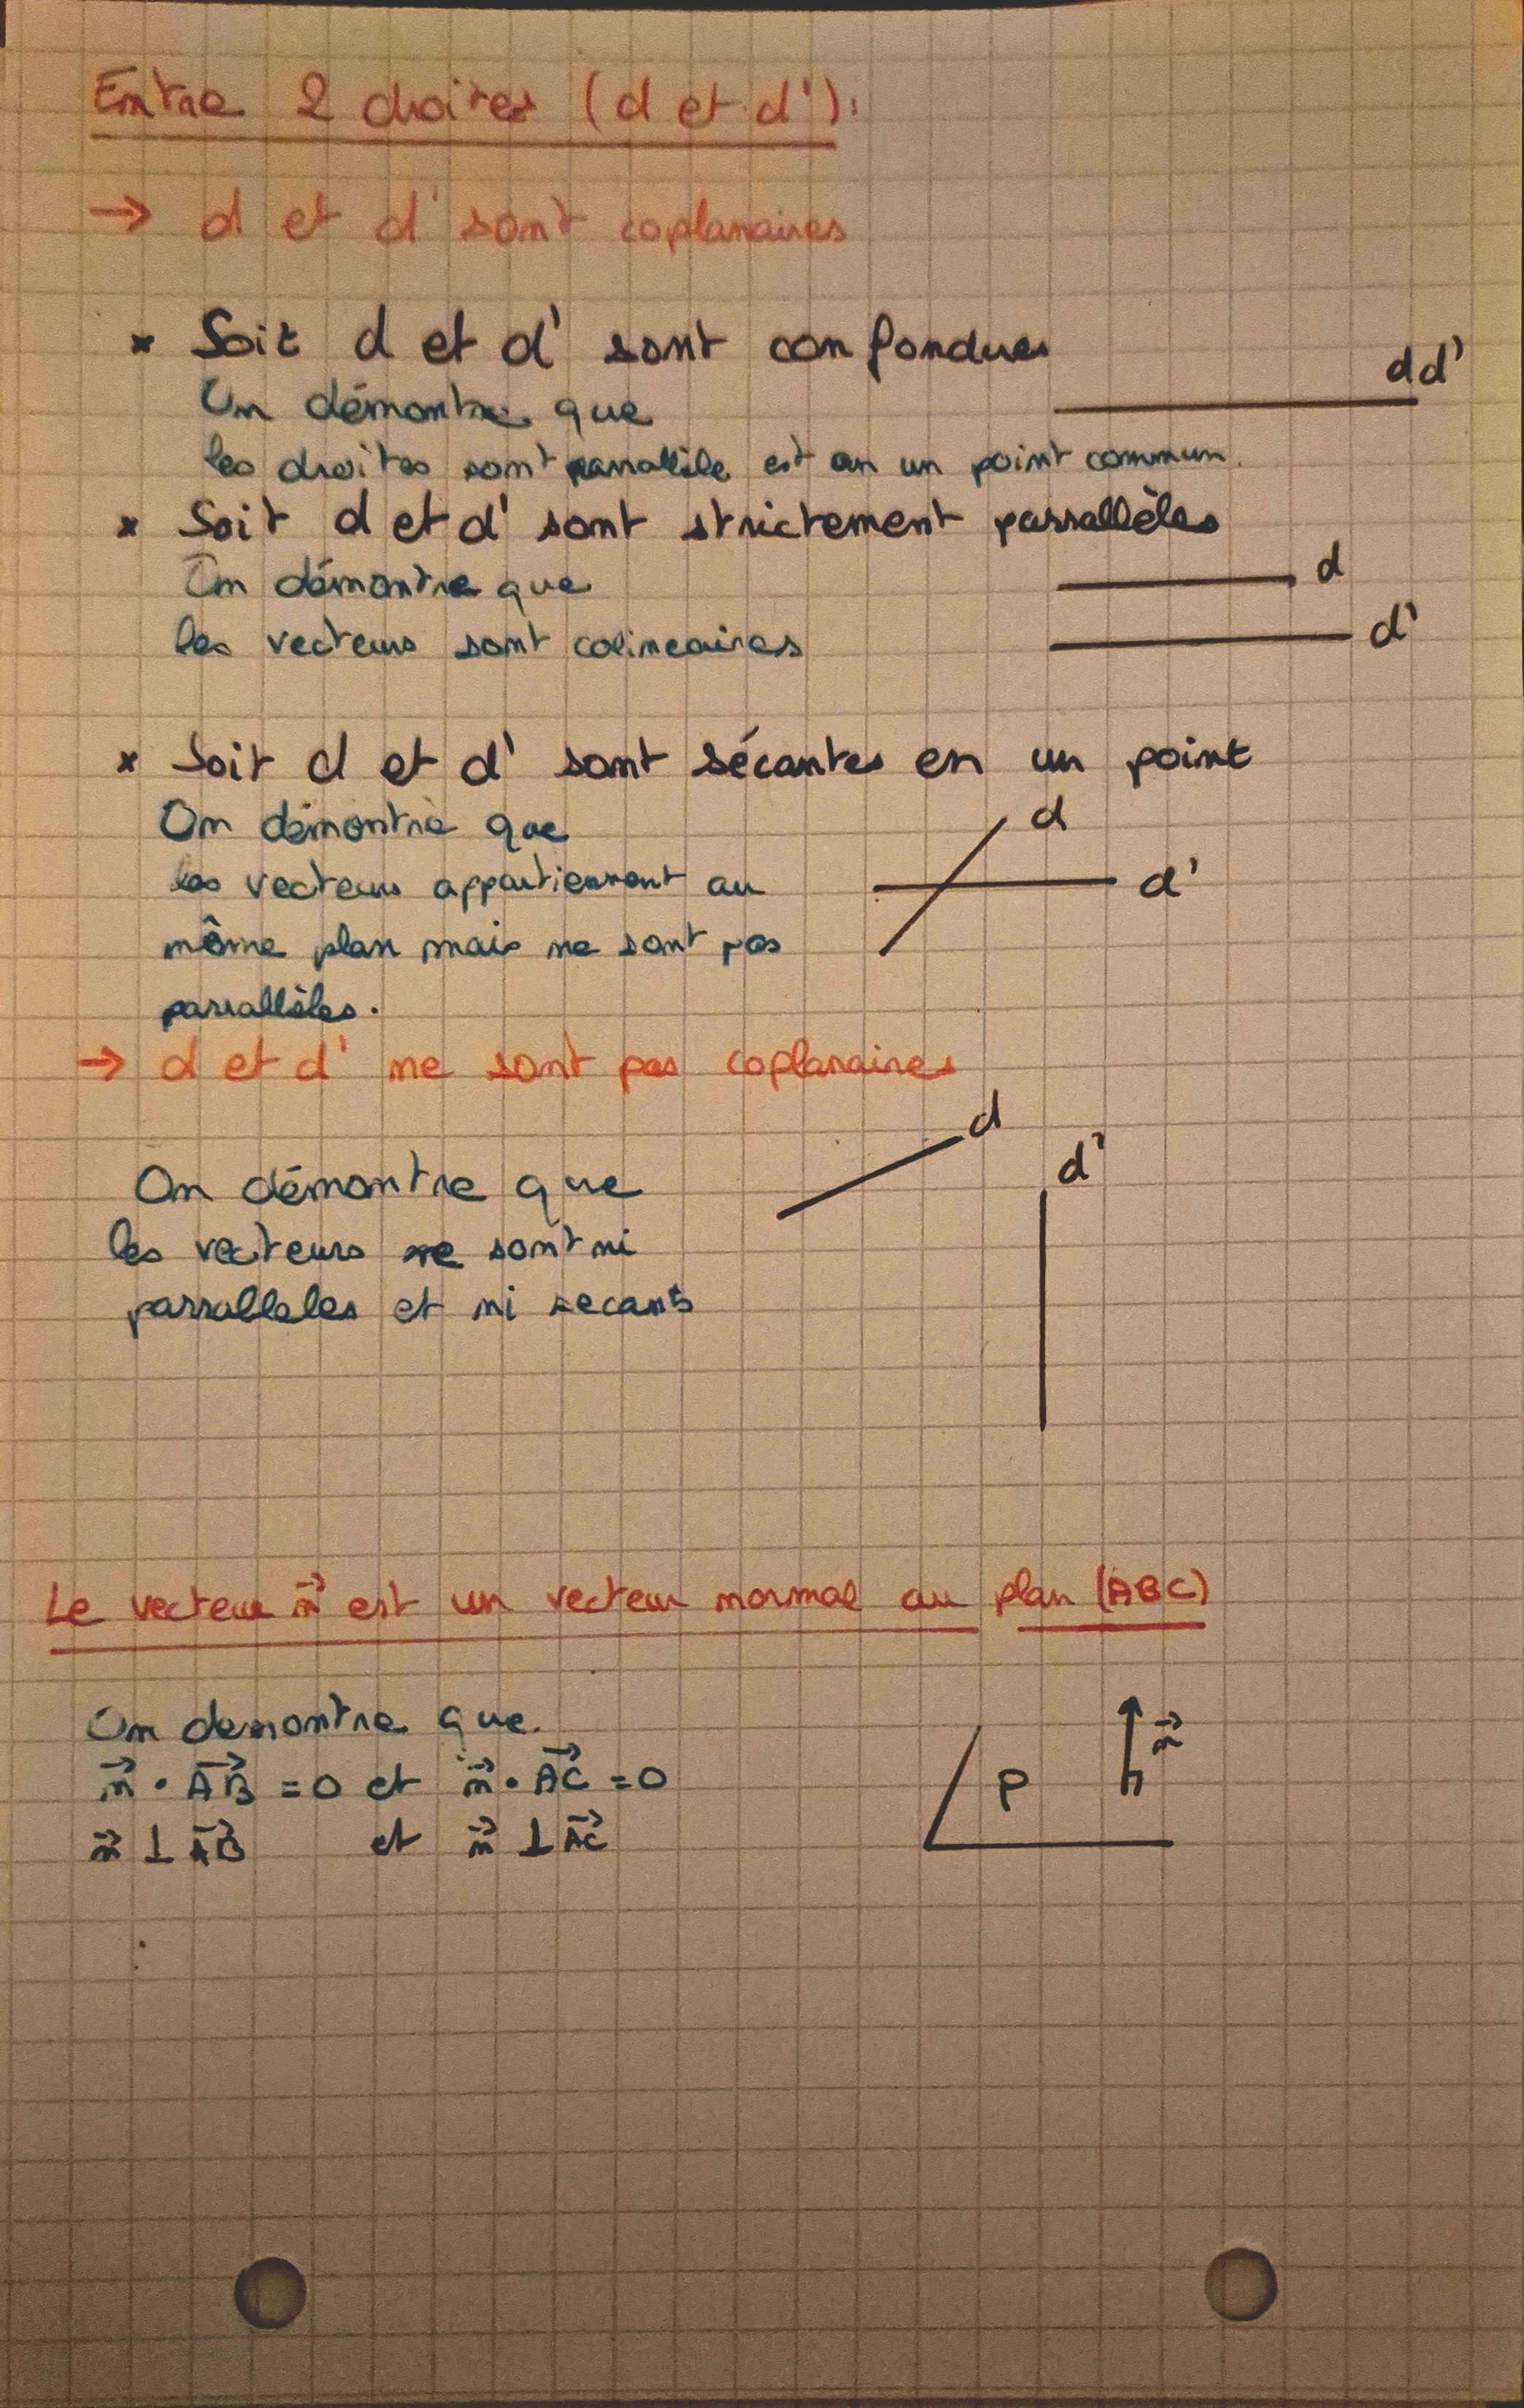 Entre 2 droites (d et d'):
→ d et d' sont coplanaires
* Soit d et d' sont confondues
dd'
On démontre que
les droites sont parrallèle est on un point commun.
* Soit d et d' sont strictement parrallèles
On démontre que
d
les vecteurs sont colineaires
d'
* Soit d et d' sont sécantes en un point
On démontre que
d
les vecteurs appartiennent au
d'
même plan mais ne sont pas
parrallèles.
→ d et d' ne sont pas coplanaires
d
d'
On démontre que
les vecteurs ne sont ni
parralleles et ni secants
Le vecteur n⃗ est un vecteur normal au plan (ABC)
On demontre que.
n⃗ · AB⃗ = 0 et n⃗ · AC⃗ = 0
P
n⃗
n⃗ ⊥ AB⃗ et n⃗ ⊥ AC⃗